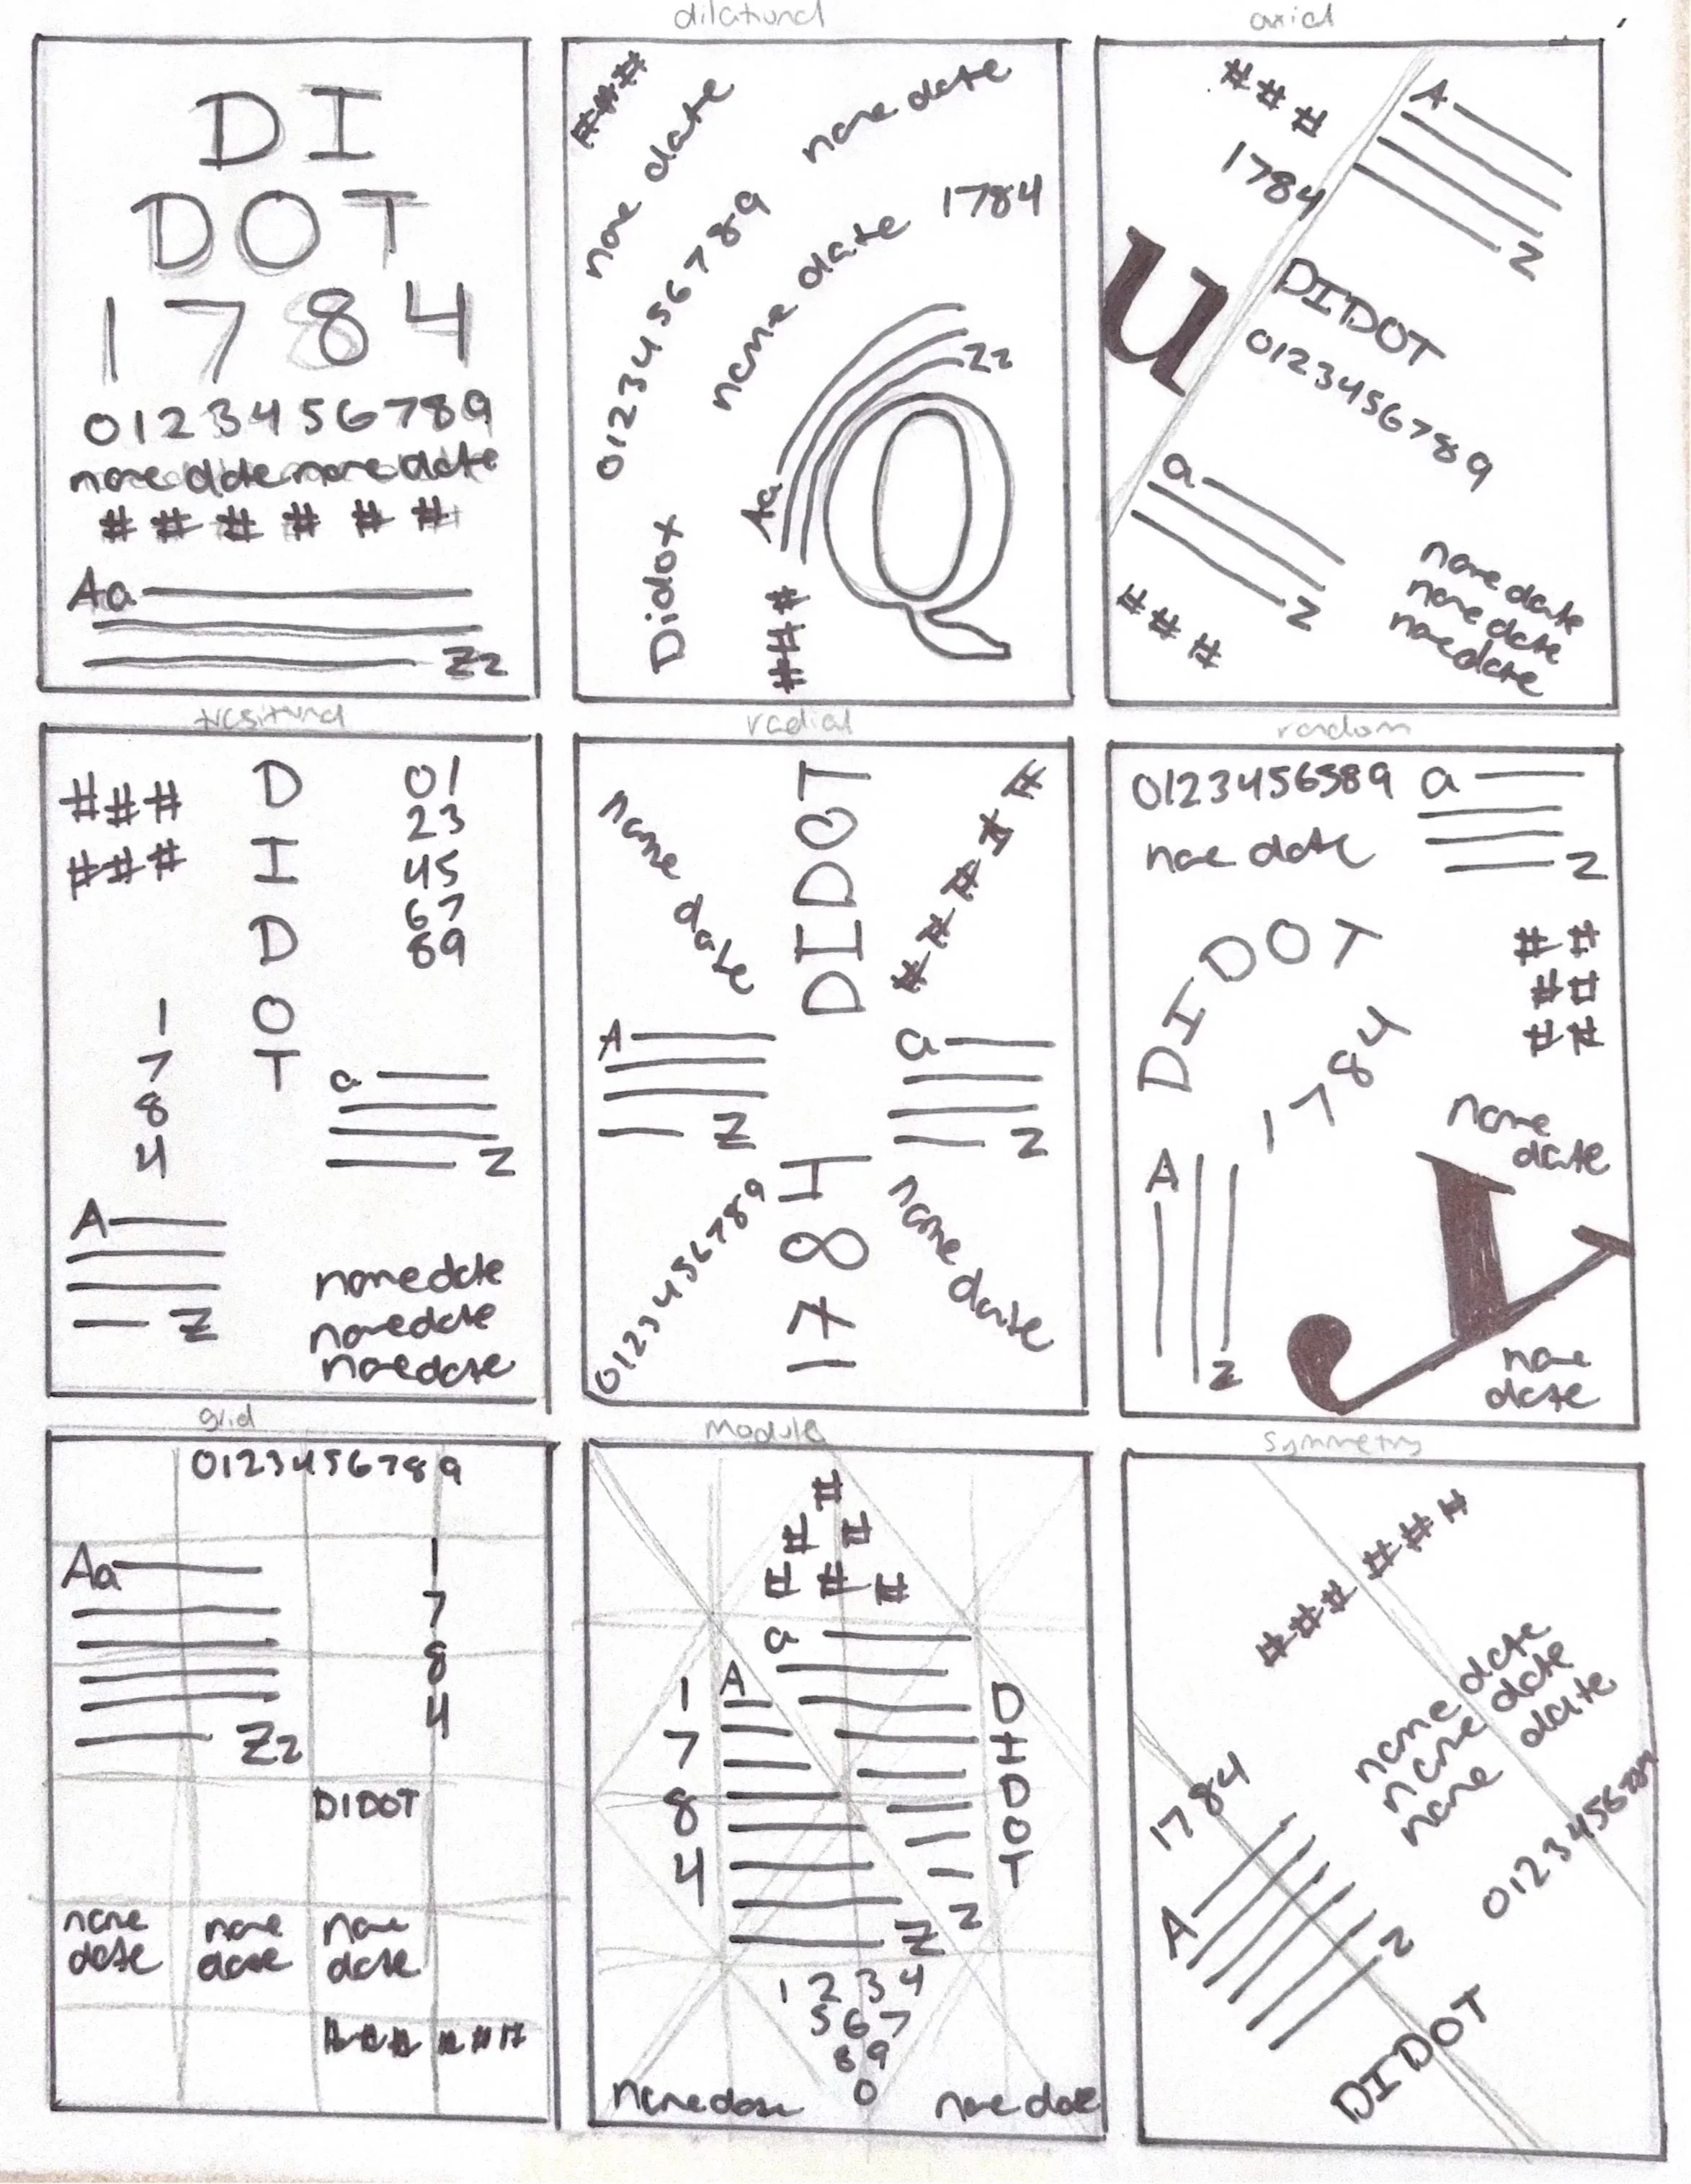 dilational
axial
DI
DOT
1784
0123456789
name date name date
# # # # # #
Aa
Zz
###
name date
name date
0123456789
name date
1784
Zz
Aa
Q
Didox
###
# # #
A
1784
Z
u
DIDOT
0123456789
a
Z
# # #
name date
name date
name date
radial
random
###
###
D
I
D
O
T
01
23
45
67
89
1
7
8
4
a
Z
A
Z
name date
name date
name date
name date
DIDOT
# # # # #
A
Z
a
Z
0123456789
1784
name date
0123456589
a
Z
name date
DIDOT
# #
# #
# #
1784
name
date
A
Z
y
name
date
grid
module
symmetry
0123456789
Aa
Zz
1
7
8
4
DIDOT
name
date
name
date
name
date
# # # # # #
#
# #
# # #
a
A
1
7
8
4
D
I
D
O
T
z
Z
1 2 3 4
5 6 7
8 9
0
name date
name date
### ###
name date
name date
name date
1784
0123456789
A
Z
DIDOT